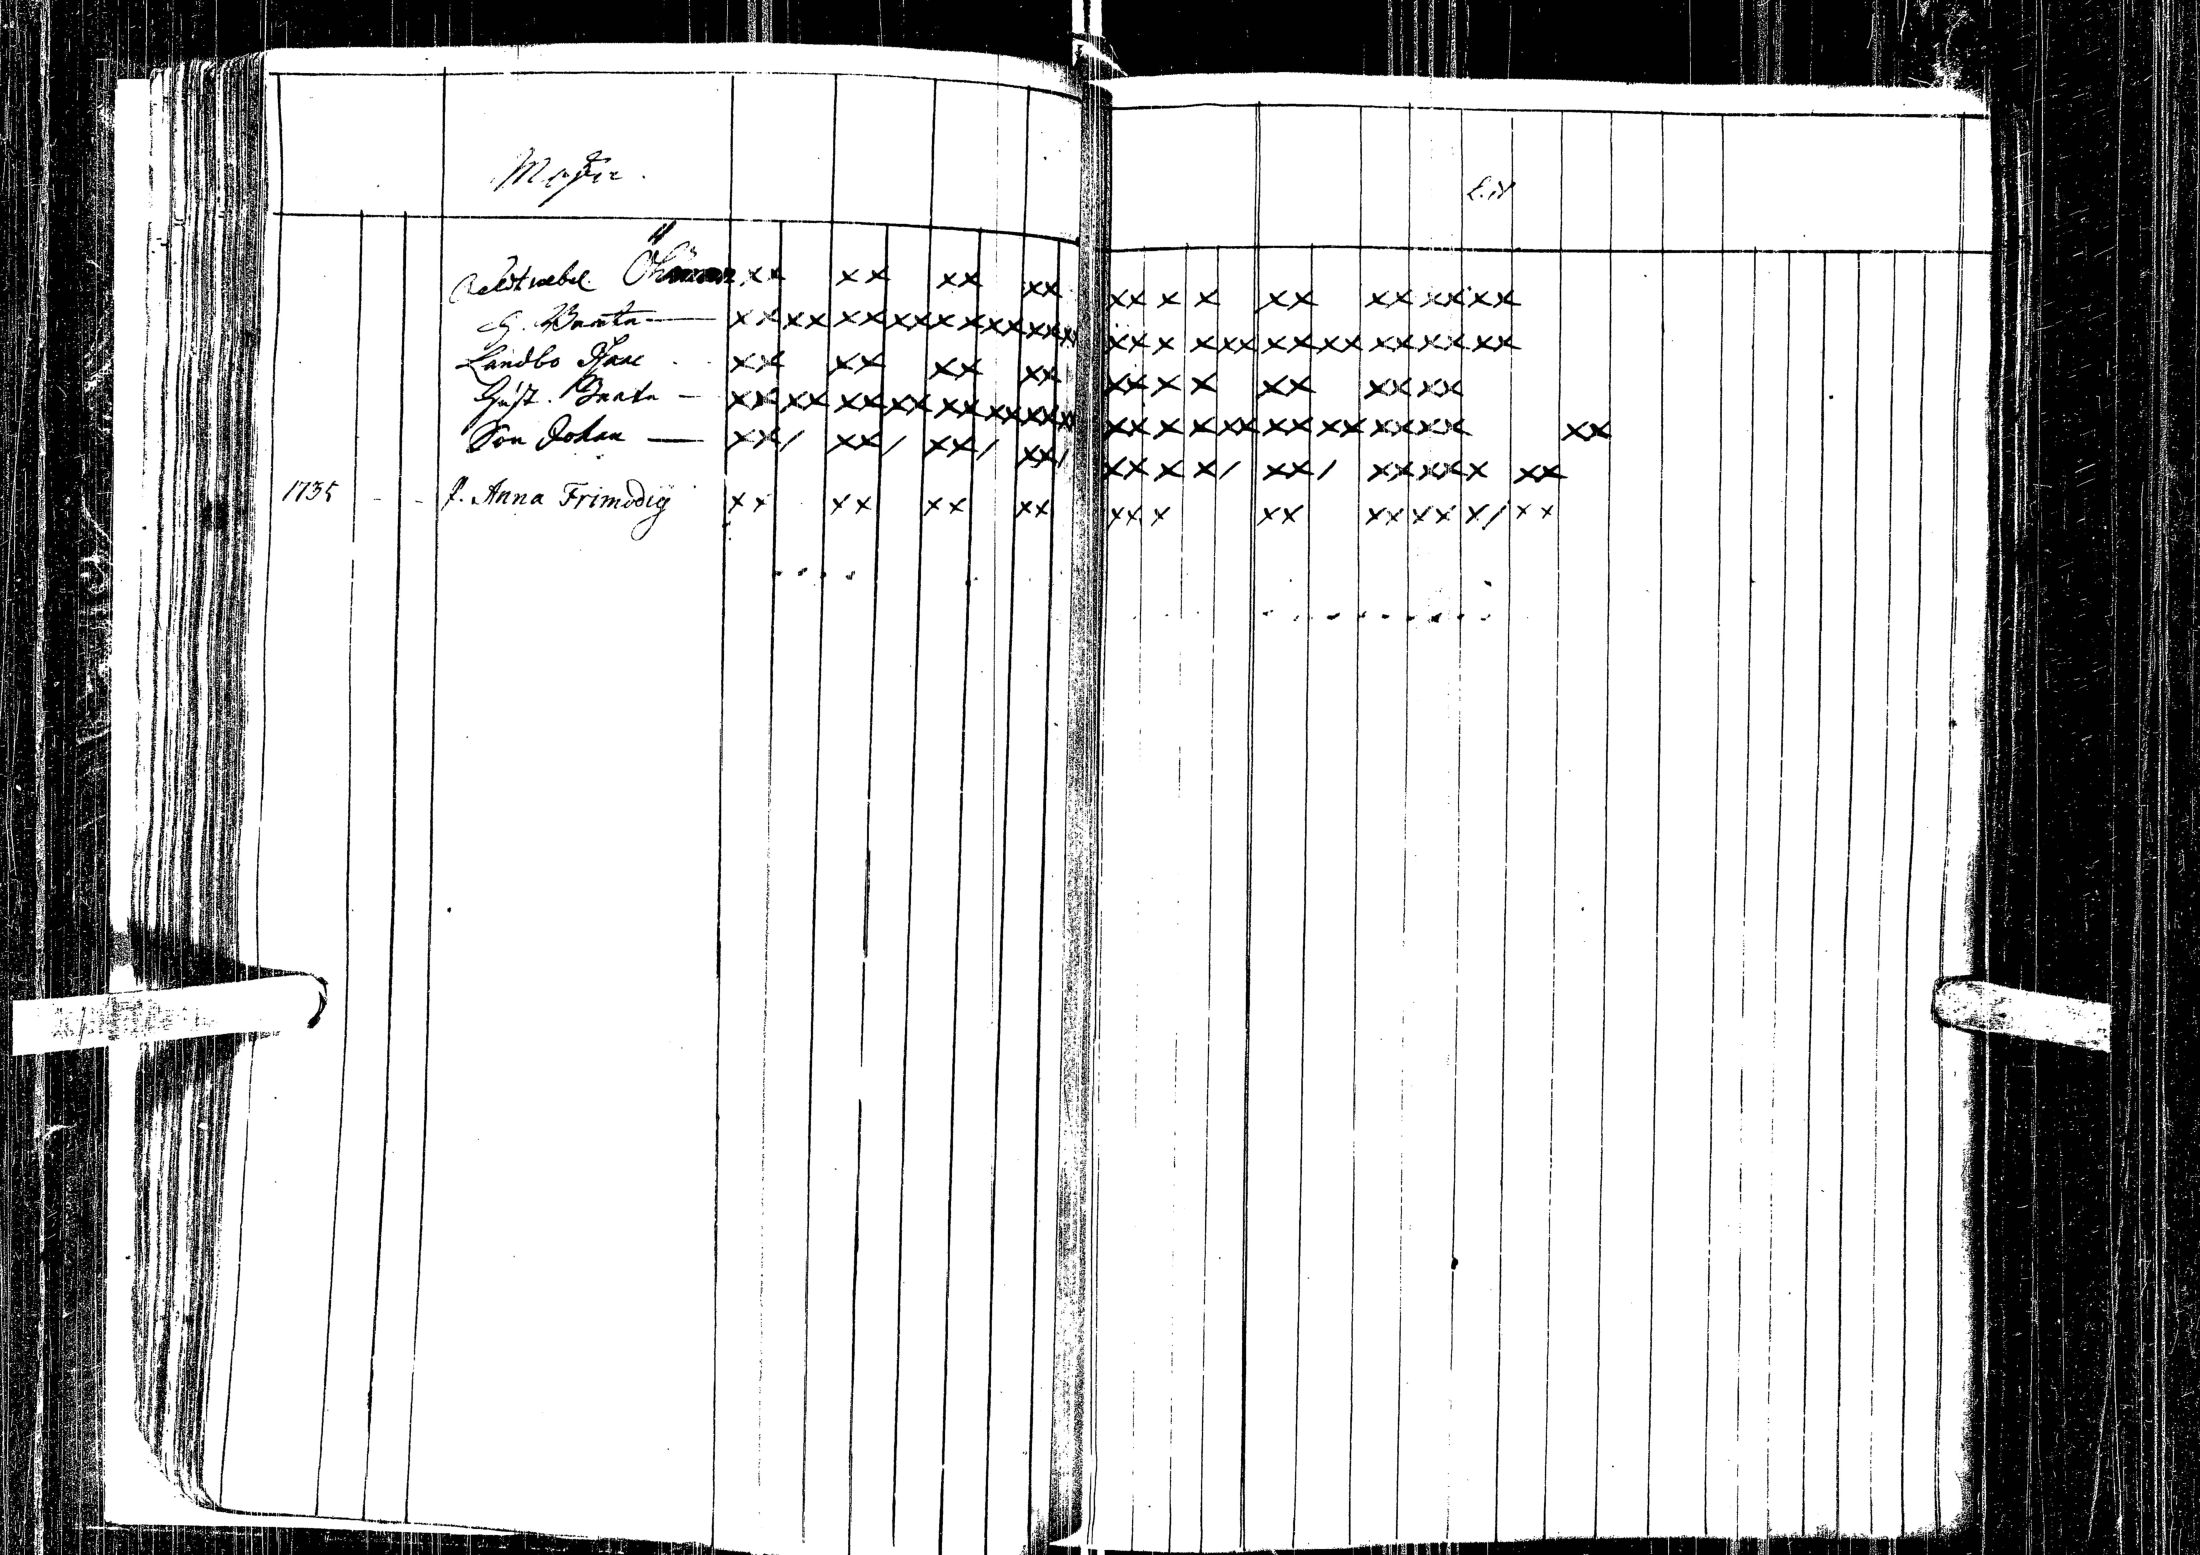 Feldtwebel Öhman xx xx xx xx xx x x xx xx xx xx
H. Beata — xx xx xx xx xx xx xx xx xx x x xx xx xx xx xx xx
Landbo Isaac xx xx xx xx xx x x xx xx xx
Hust. Beata — xx xx xx xx xx xx xx xx xx x x xx xx xx xx xx xx
Son Johan — xx/ xx/ xx/ xx/ xx x x/ xx/ xx xx x xx
1735 - - J. Anna Frimodig xx xx xx xx xx x xx xx xx x/ xx